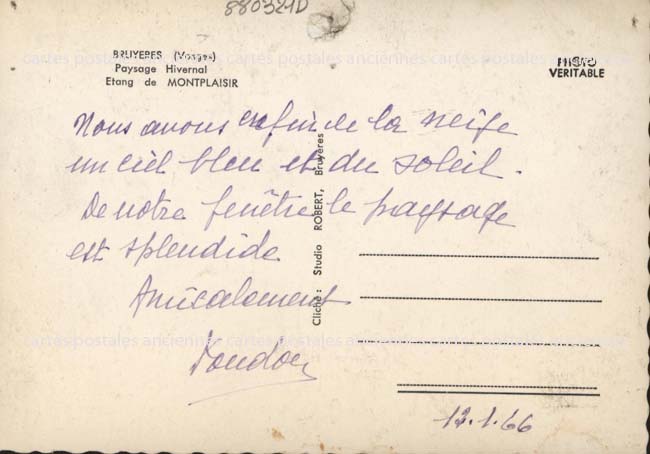 880321D
BRUYERES (Vosges)
Paysage Hivernal
Etang de MONTPLAISIR
PHOTO
VERITABLE
cartes postales anciennes cartes postales anciennes cartes postales anciennes
Nous avons enfin de la neige
un ciel bleu et du soleil.
De notre fenêtre le paysage
est splendide
Amicalement
Cliché : Studio ROBERT, Bruyères
cartes postales anciennes cartes postales anciennes cartes postales anciennes
12.1.66